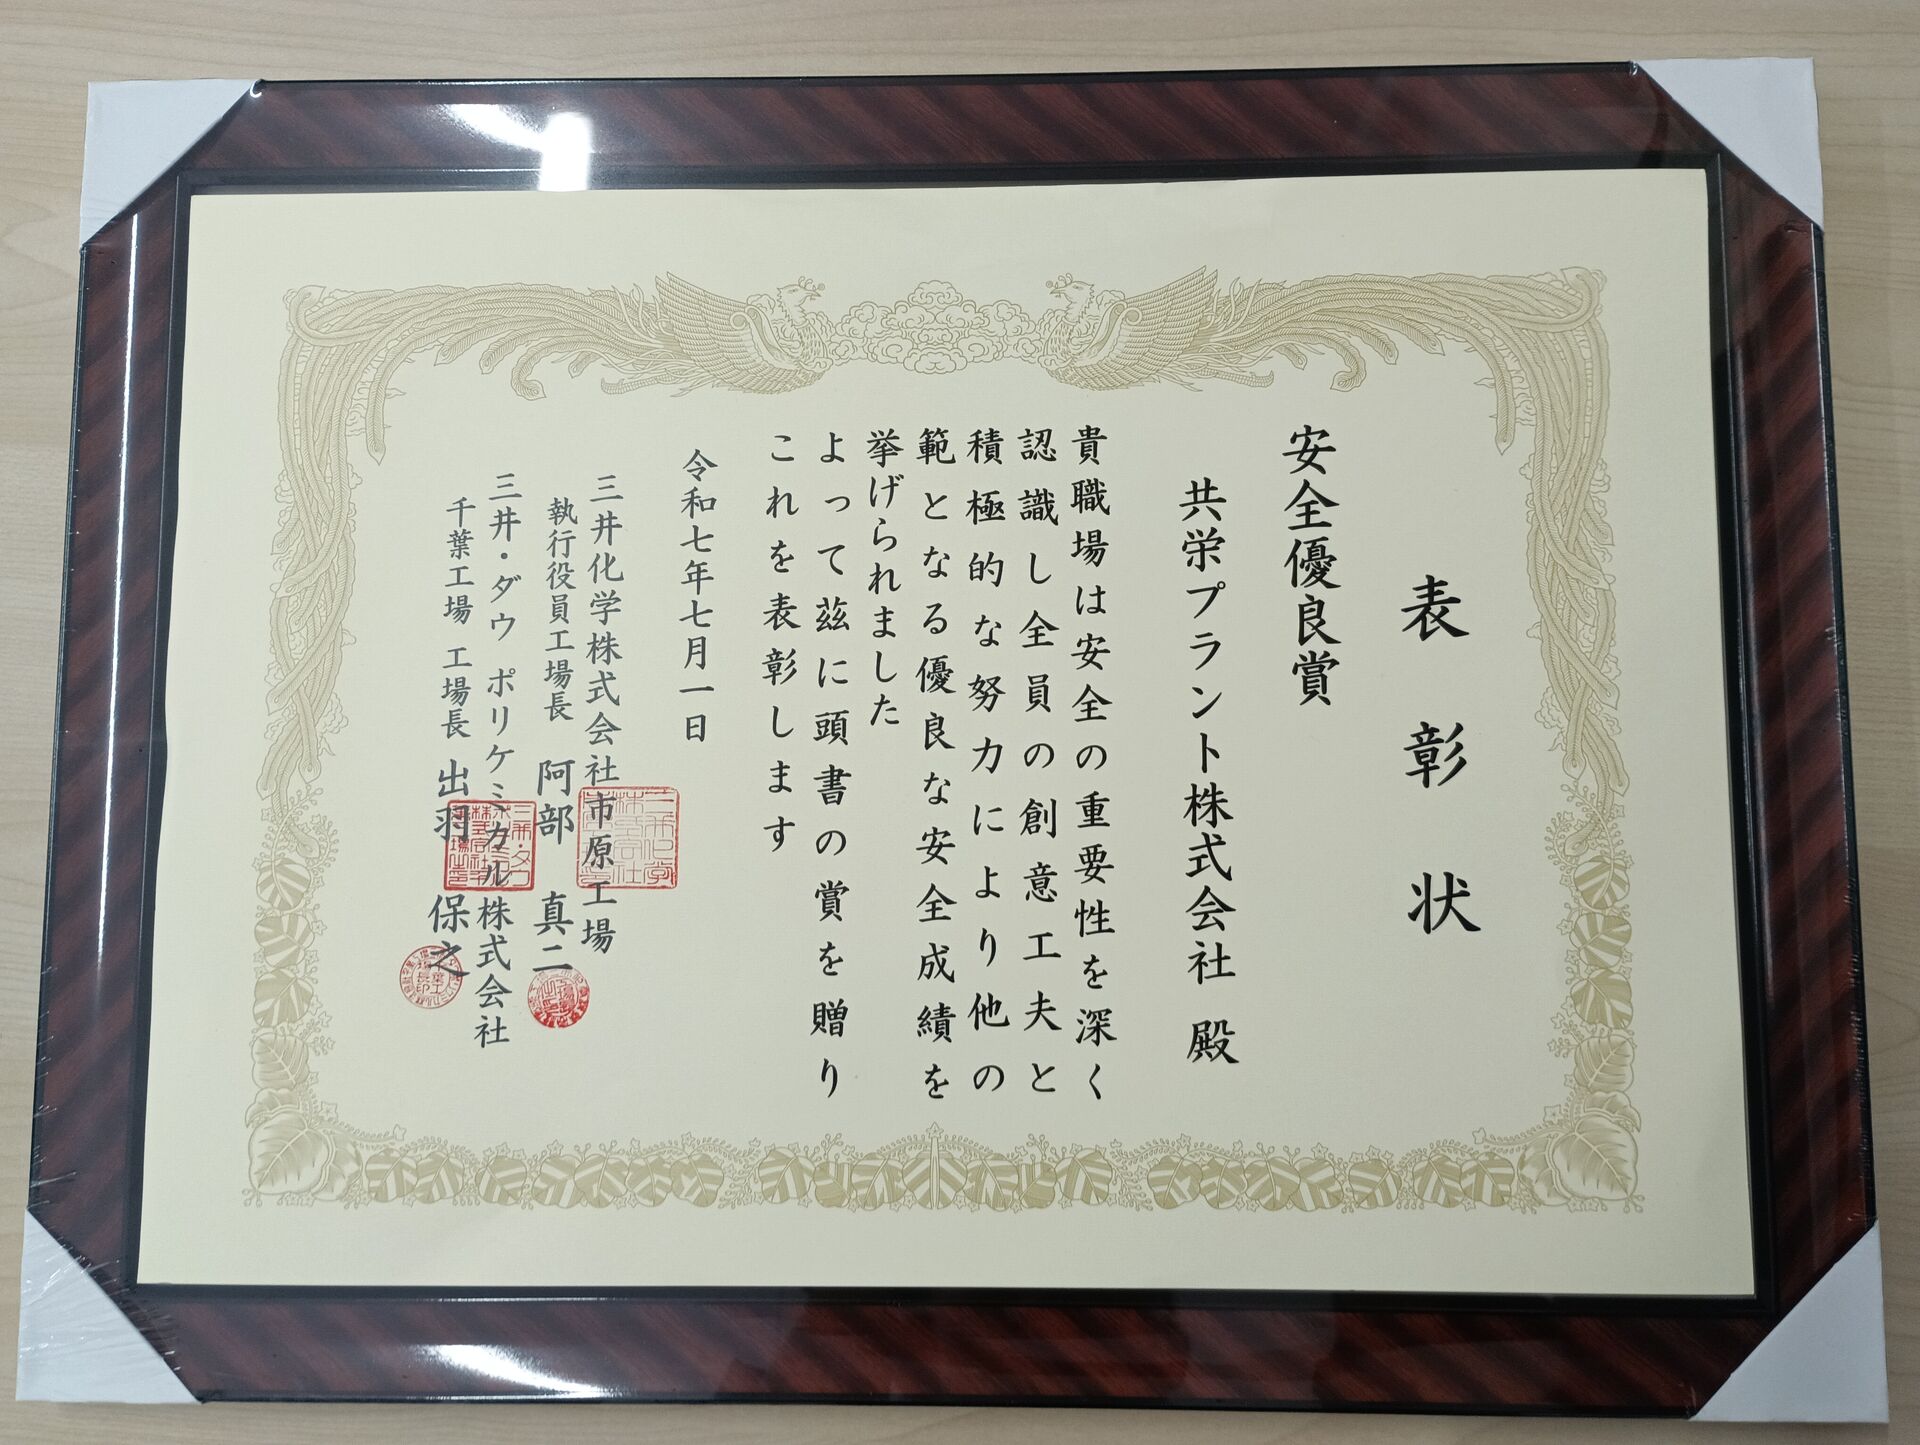 表彰状
安全優良賞
共栄プラント株式会社 殿
貴職場は安全の重要性を深く
認識し全員の創意工夫と
積極的な努力により他の
範となる優良な安全成績を
挙げられました
よって茲に頭書の賞を贈り
これを表彰します
令和七年七月一日
三井化学株式会社市原工場
執行役員工場長 阿部 真二
三井・ダウ ポリケミカル株式会社
千葉工場 工場長 出羽 保之